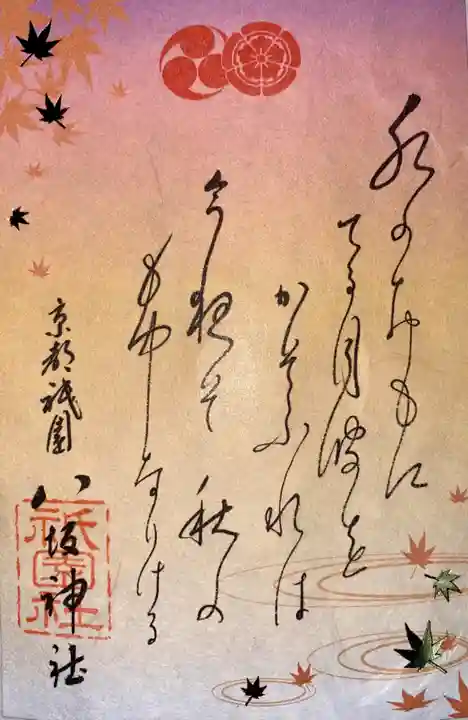 水のおもに
てる月波を
かそふれは
今夜そ秋の
も中なりける
京都祇園
八坂神社
祇園社